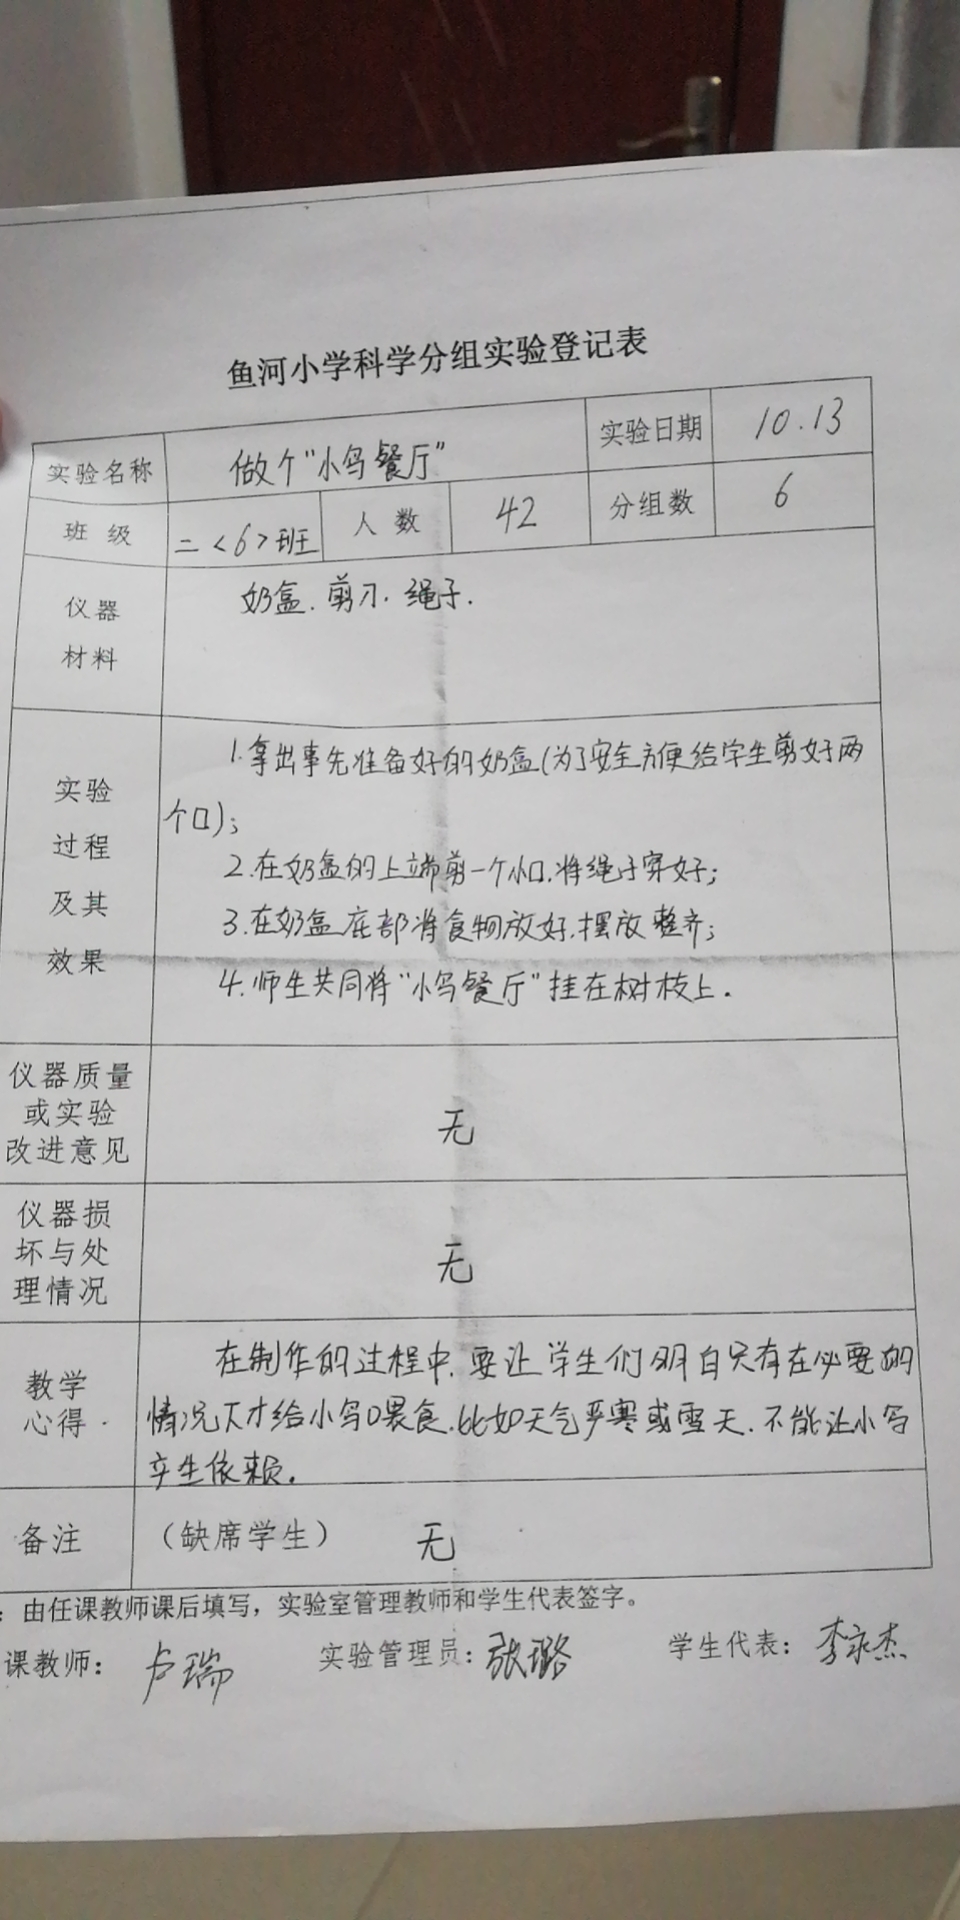 鱼河小学科学分组实验登记表
实验名称 做个"小鸟餐厅" 实验日期 10.13
班 级 二<6>班 人 数 42 分组数 6
仪器
材料
奶盒. 剪刀. 绳子.
实验
过程
及其
效果
1.拿出事先准备好的奶盒(为了安全方便给学生剪好两
个口);
2.在奶盒的上端剪一个小口.将绳子穿好;
3.在奶盒底部将食物放好.摆放整齐;
4.师生共同将"小鸟餐厅"挂在树枝上.
仪器质量
或实验
改进意见
无
仪器损
坏与处
理情况
无
教学
心得
在制作的过程中.要让学生们明白只有在必要的
情况下才给小鸟喂食.比如天气严寒或雪天.不能让小鸟
产生依赖.
备注 （缺席学生） 无
：由任课教师课后填写，实验室管理教师和学生代表签字。
课教师： 卢瑞 实验管理员：张璐 学生代表：李永杰